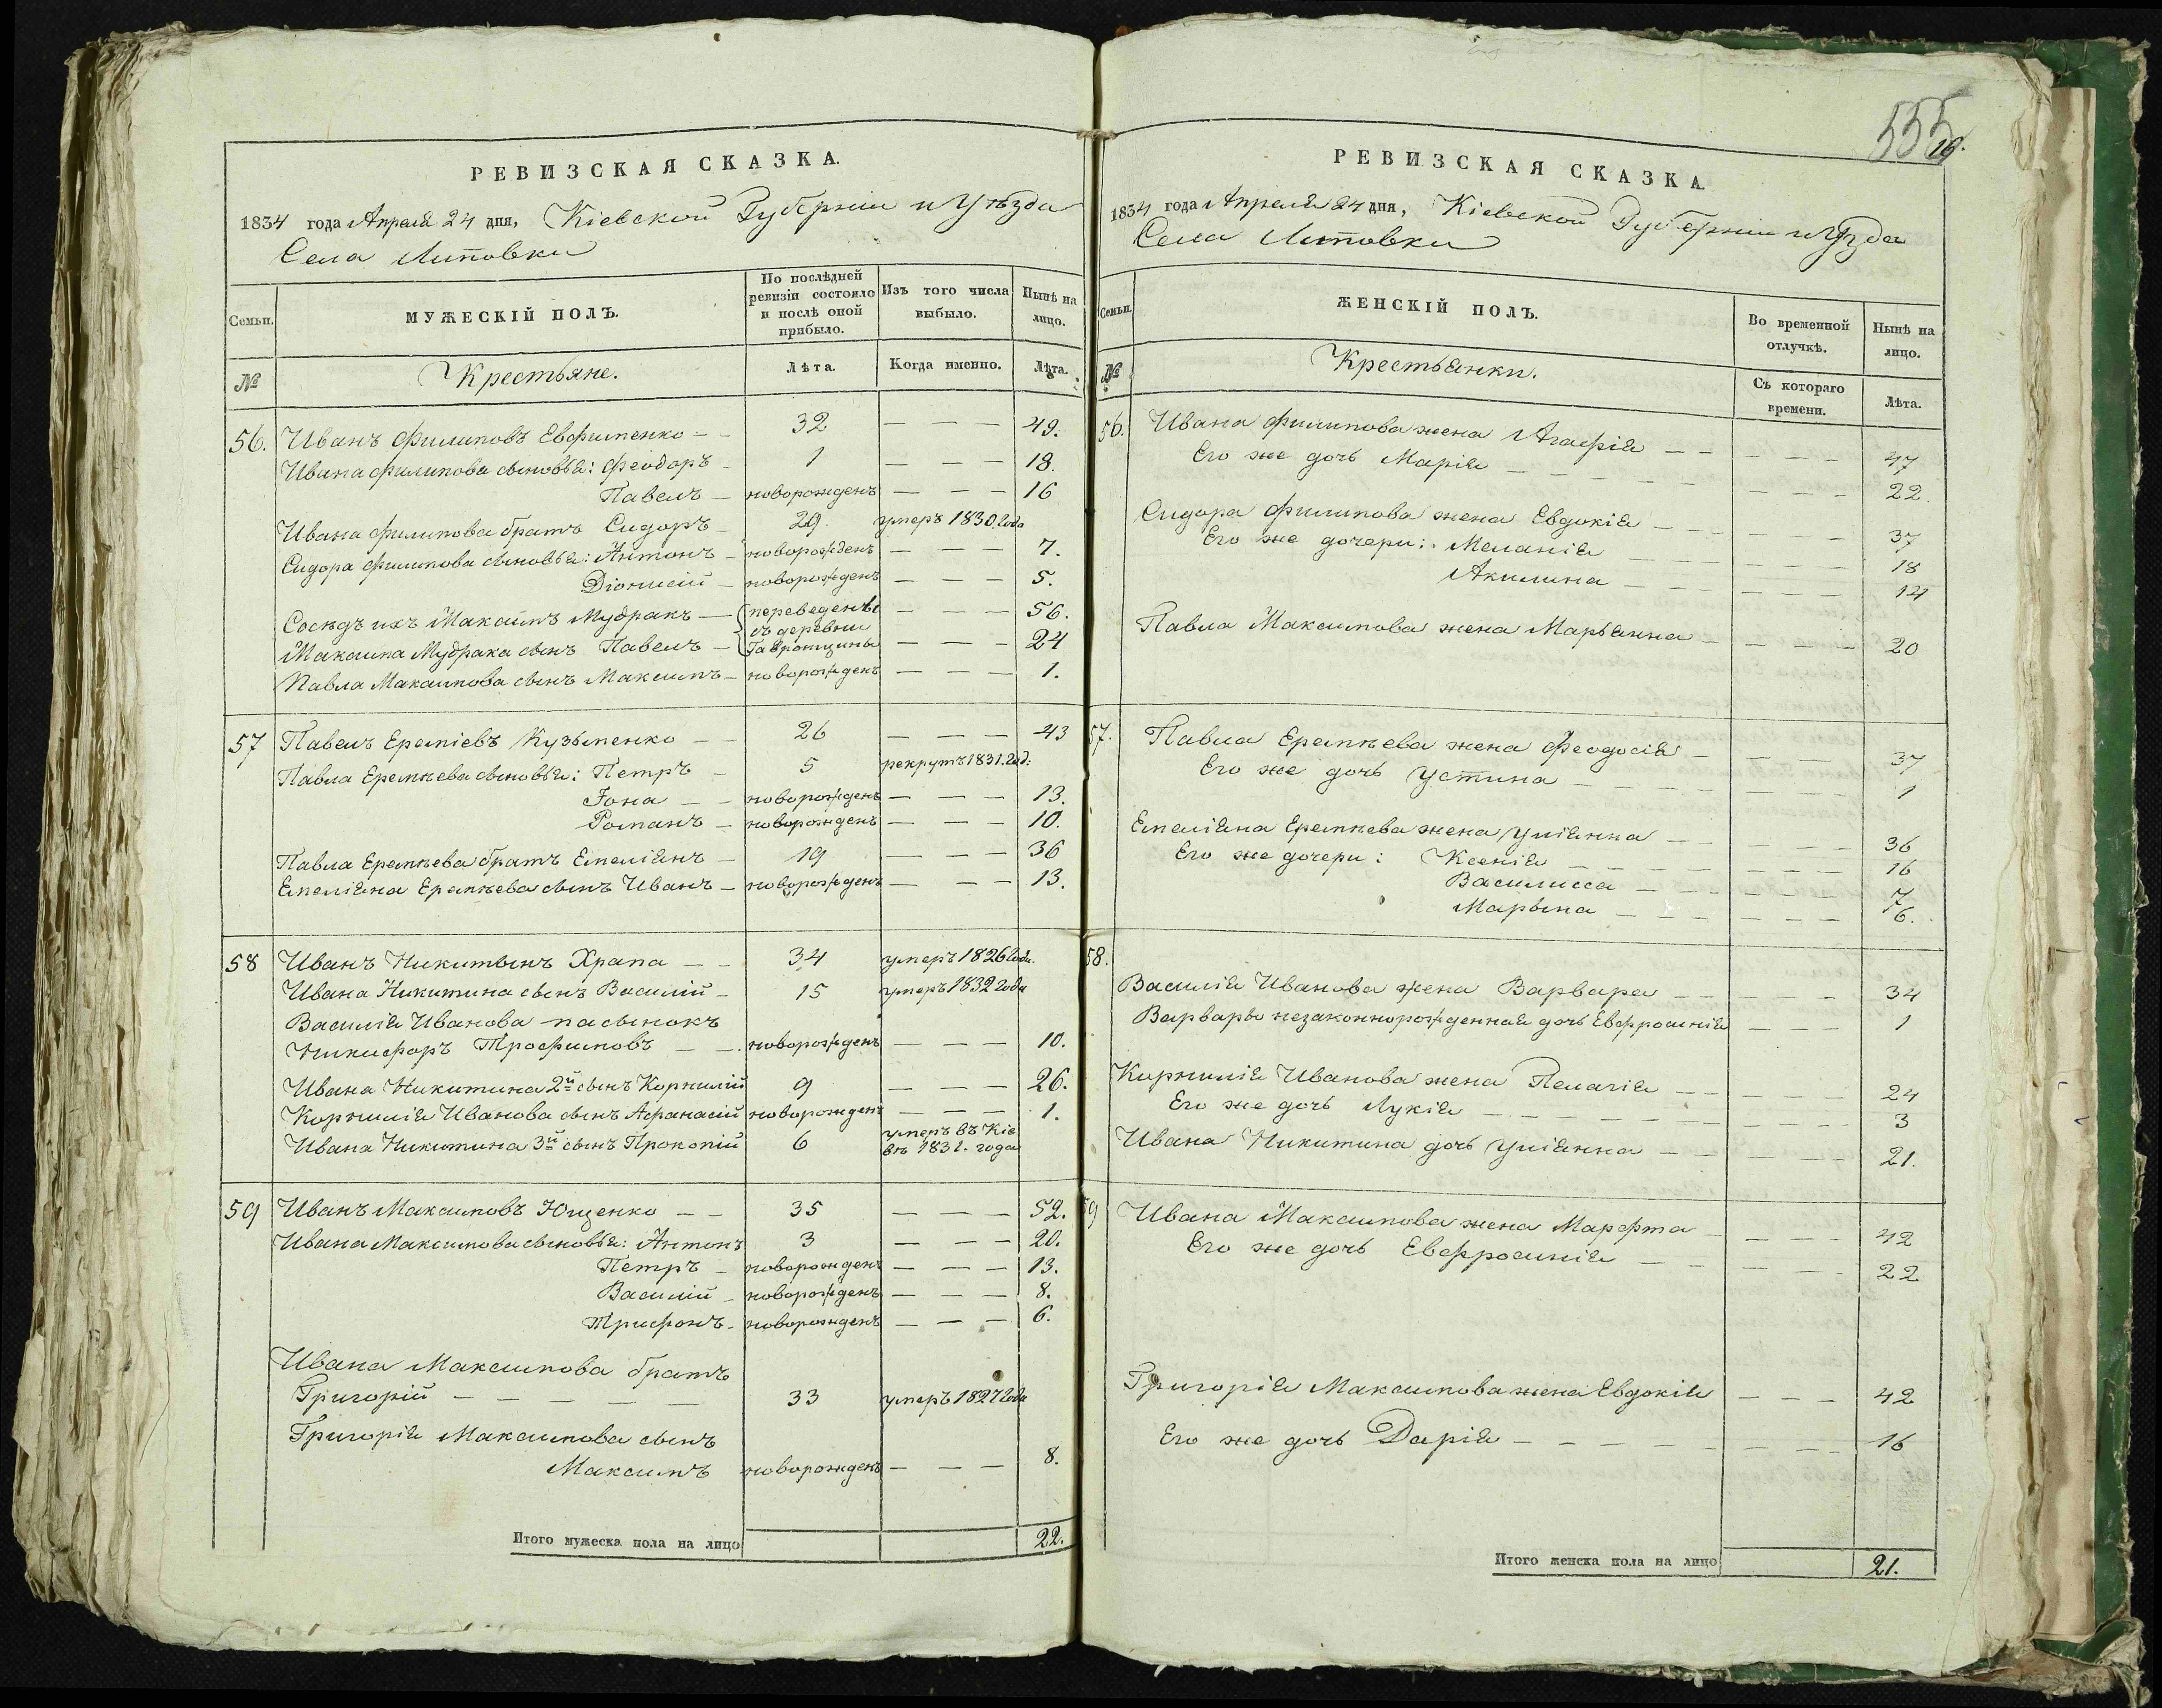 РЕВИЗСКАЯ СКАЗКА.
1834 года Апреля 24 дня, Кіевской Губерніи и Уѣзда
Села Литовки
Семьи.
МУЖЕСКІЙ ПОЛЪ.
По послѣдней
ревизіи состояло
и послѣ оной
прибыло.
Изъ того числа
выбыло.
Нынѣ на
лицо.
№
Крестьяне.
Лѣта.
Когда именно.
Лѣта.
56. Иванъ Филиповъ Евфименко — — 32 — — — 49.
Ивана Филипова сыновья: Феодоръ — 1 — — — 18.
Павелъ — новорожденъ — — — 16
Ивана Филипова братъ Сидоръ — 29. умеръ 1830 года
Сидора Филипова сыновья: Антонъ — новорожденъ — — — 7.
Діонисій — новорожденъ — — — 5.
Сосѣдъ ихъ Максимъ Мудракъ — переведены — — — 56.
съ деревни
Максима Мудрака сынъ Павелъ — Гавронщины — — — 24
Павла Максимова сынъ Максимъ — новорожденъ — — — 1.
57 Павелъ Ереміевъ Кузьменко — — 26 — — — 43
Павла Еремѣева сыновья: Петръ — 5 рекрутъ 1831. год:
Іона — — новорожденъ — — — 13.
Романъ — новорожденъ — — — 10.
Павла Еремѣева братъ Емеліянъ — 19 — — — 36
Емеліяна Еремѣева сынъ Иванъ — новорожденъ — — — 13.
58 Иванъ Никитынъ Храпа — — 34 умеръ 1826 года.
Ивана Никитина сынъ Василій — 15 умеръ 1832 года
Василія Иванова пасынокъ
Никифоръ Трофимовъ — — новорожденъ — — — 10.
Ивана Никитина 2й сынъ Корнилій 9 — — — 26.
Корнилія Иванова сынъ Афанасій новорожденъ — — — 1.
Ивана Никитина 3й сынъ Прокопій 6 умеръ въ Кіе
въ 1831. года
59 Иванъ Максимовъ Ющенко — — 35 — — — 52.
Ивана Максимова сыновья: Антонъ 3 — — — 20.
Петръ — новорожденъ — — — 13.
Василій — новорожденъ — — — 8.
Трифонъ — новорожденъ — — — 6.
Ивана Максимова братъ
Григорій — — — — — 33 умеръ 1827 года
Григорія Максимова сынъ
Максимъ новорожденъ — — — 8.
Итого мужеска пола на лицо 22.
555
16.
РЕВИЗСКАЯ СКАЗКА.
1834 года Апреля 24 дня, Кіевской Губерніи и Уѣзда
Села Литовки
Семьи.
ЖЕНСКІЙ ПОЛЪ.
Во временной
отлучкѣ.
Нынѣ на
лицо.
№
Крестьянки.
Съ котораго
времени.
Лѣта.
56. Ивана Филипова жена Агафія — — — — — 47
Его же дочь Марія — — — — — 22.
Сидора Филипова жена Евдокія — — — — 37
Его же дочери: Меланія — — — — 18
Акилина — — — — 14
Павла Максимова жена Марьянна — — — — 20
57. Павла Еремѣева жена Феодосія — — — — 37
Его же дочь Устина — — — — 1
Емеліяна Еремѣева жена Уліянна — — — — 36
Его же дочери: Ксенія — — — — 16
Василисса — — — — 7
Марына — — — — 6.
58.
Василія Иванова жена Варвара — — — — 34
Варвары незаконнорожденная дочь Евфросинія — — — 1
Корнилія Иванова жена Пелагія — — — — 24
Его же дочь Лукія — — — — 3
Ивана Никитина дочь Уліянна — — — — 21.
59 Ивана Максимова жена Марфта — — — — 42
Его же дочь Евфросинія — — — — 22
Григорія Максимова жена Евдокія — — — 42
Его же дочь Дарія — — — — — 16
Итого женска пола на лицо 21.